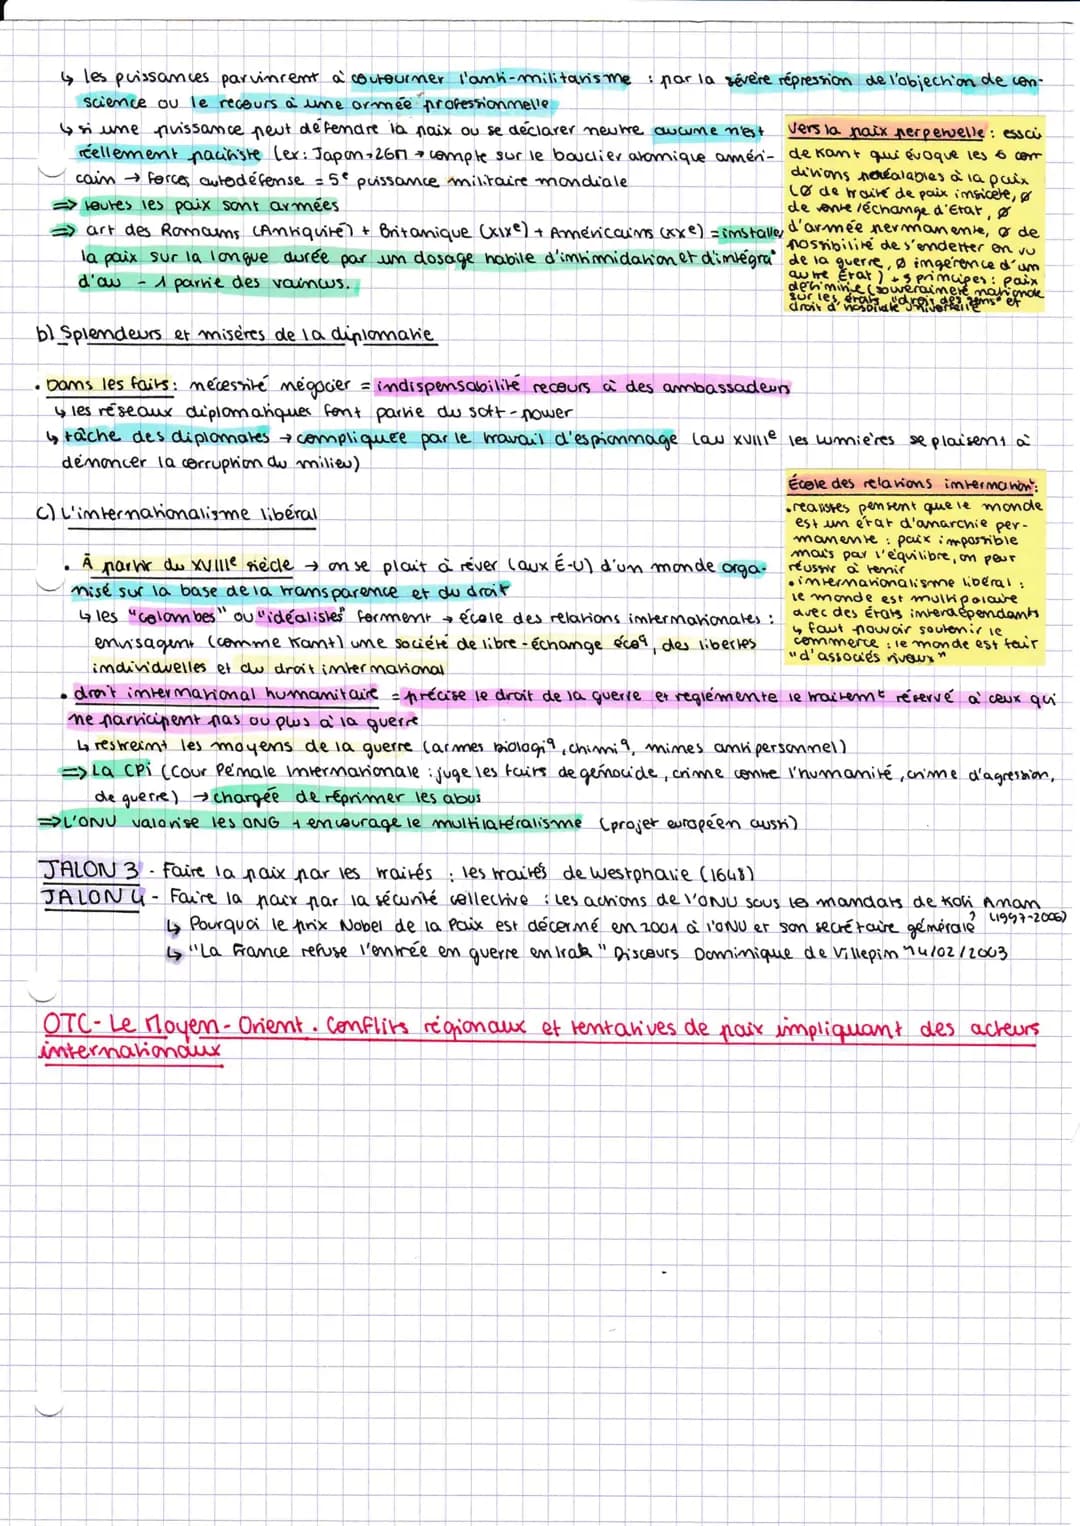 ↳ les puissances parvinrent à coutourner l'anti-militarisme : par la sévère répression de l'objection de con-
science ou le recours à une armée professionnelle
↳ si une puissance peut défendre la paix ou se déclarer neutre aucune n'est
réellement pacifiste (ex: Japon → 2GM → compte sur le bouclier atomique améri-
cain → forces autodéfense = 5e puissance militaire mondiale
⇒ toutes les paix sont armées
⇒ art des Romains (Antiquité) + Britanique (XIXe) + Américains (XXe) = installer
la paix sur la longue durée par un dosage habile d'intimidation et d'intégra°
d'au - 1 partie des vaincus.
Vers la paix perpetuelle : essai
de Kant qui évoque les 6 con
ditions préalables à la paix
(Ø de traité de paix insicère, Ø
de vente/échange d'État, Ø
d'armée permanente, Ø de
possibilité de s'endetter en vu
de la guerre, Ø ingérence d'un
autre État) + 3 principes : paix
définitive (souveraineté nationale
sur les états "droit des gens" et
droit d'hospitalité universelle
b) Splendeurs et misères de la diplomatie
• Dans les faits : nécessité négocier = indispensabilité recours à des ambassadeurs
↳ les réseaux diplomatiques font partie du soft-power
↳ tâche des diplomates → compliquée par le travail d'espionnage (au XVIIIe les lumières se plaisent à
dénoncer la corruption du milieu)
c) L'internationalisme libéral
• À partir du XVIIIe siècle → on se plait à rêver (aux É-U) d'un monde orga-
nisé sur la base de la transparence et du droit
↳ les "colombes" ou "idéalistes" forment → école des relations internationales :
envisagent (comme Kant) une société de libre-échange éco9, des libertés
individuelles et du droit international
École des relations internation^t :
• réalistes pensent que le monde
est un état d'anarchie per-
manente : paix impossible
mais par l'équilibre, on peut
réussir à tenir
• internationalisme libéral :
le monde est multipolaire
avec des États interdépendants
↳ faut pouvoir soutenir le
commerce : le monde est fait
"d'associés rivaux"
• droit international humanitaire = précise le droit de la guerre et reglémente le traitemt réservé à ceux qui
ne participent pas ou plus à la guerre
↳ restreint les moyens de la guerre (armes biologi9, chimi9, mines antipersonnel)
⇒ La CPi (Cour Pénale Internationale : juge les faits de génocide, crime contre l'humanité, crime d'agression,
de guerre) → chargée de réprimer les abus
⇒ L'ONU valorise les ONG + encourage le multilatéralisme (projet européen aussi)
JALON 3 - Faire la paix par les traités : les traités de Westphalie (1648)
JALON 4 - Faire la paix par la sécurité collective : Les actions de l'ONU sous les mandats de Kofi Anan
(1997-2006)
↳ Pourquoi le prix Nobel de la Paix est décerné en 2001 à l'ONU et son secrétaire générale ?
↳ "La France refuse l'entrée en guerre en Irak" Discours Dominique de Villepin 14/02/2003
OTC - Le Moyen-Orient. Conflits régionaux et tentatives de paix impliquant des acteurs
internationaux